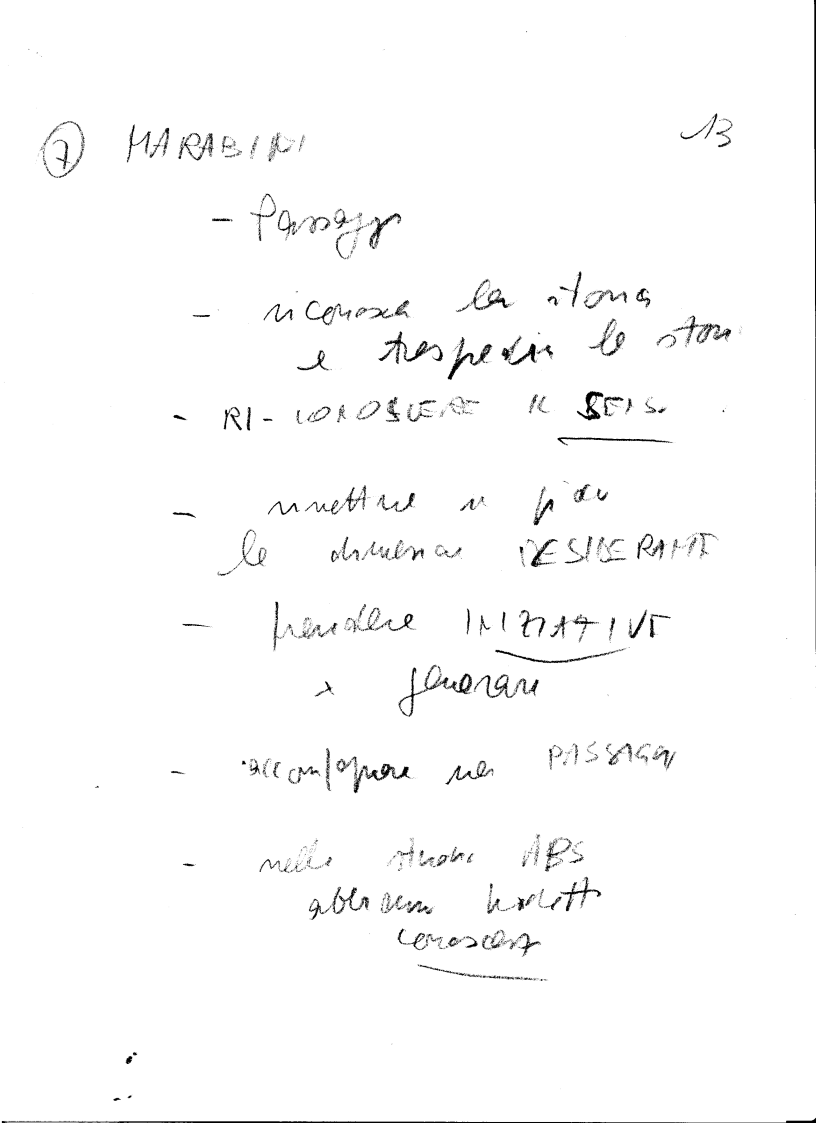 7 MARABINI 13
- Passaggi
- riconoscere la storia
e le storie
- RI-CONOSCERE IL SENSO
- rimettere in
la dimensione DESIDERANTE
- prendere INIZIATIVE
x generare
- accompagnare nei PASSAGGI
- nella ABS
abbiamo prodotto
conoscenza